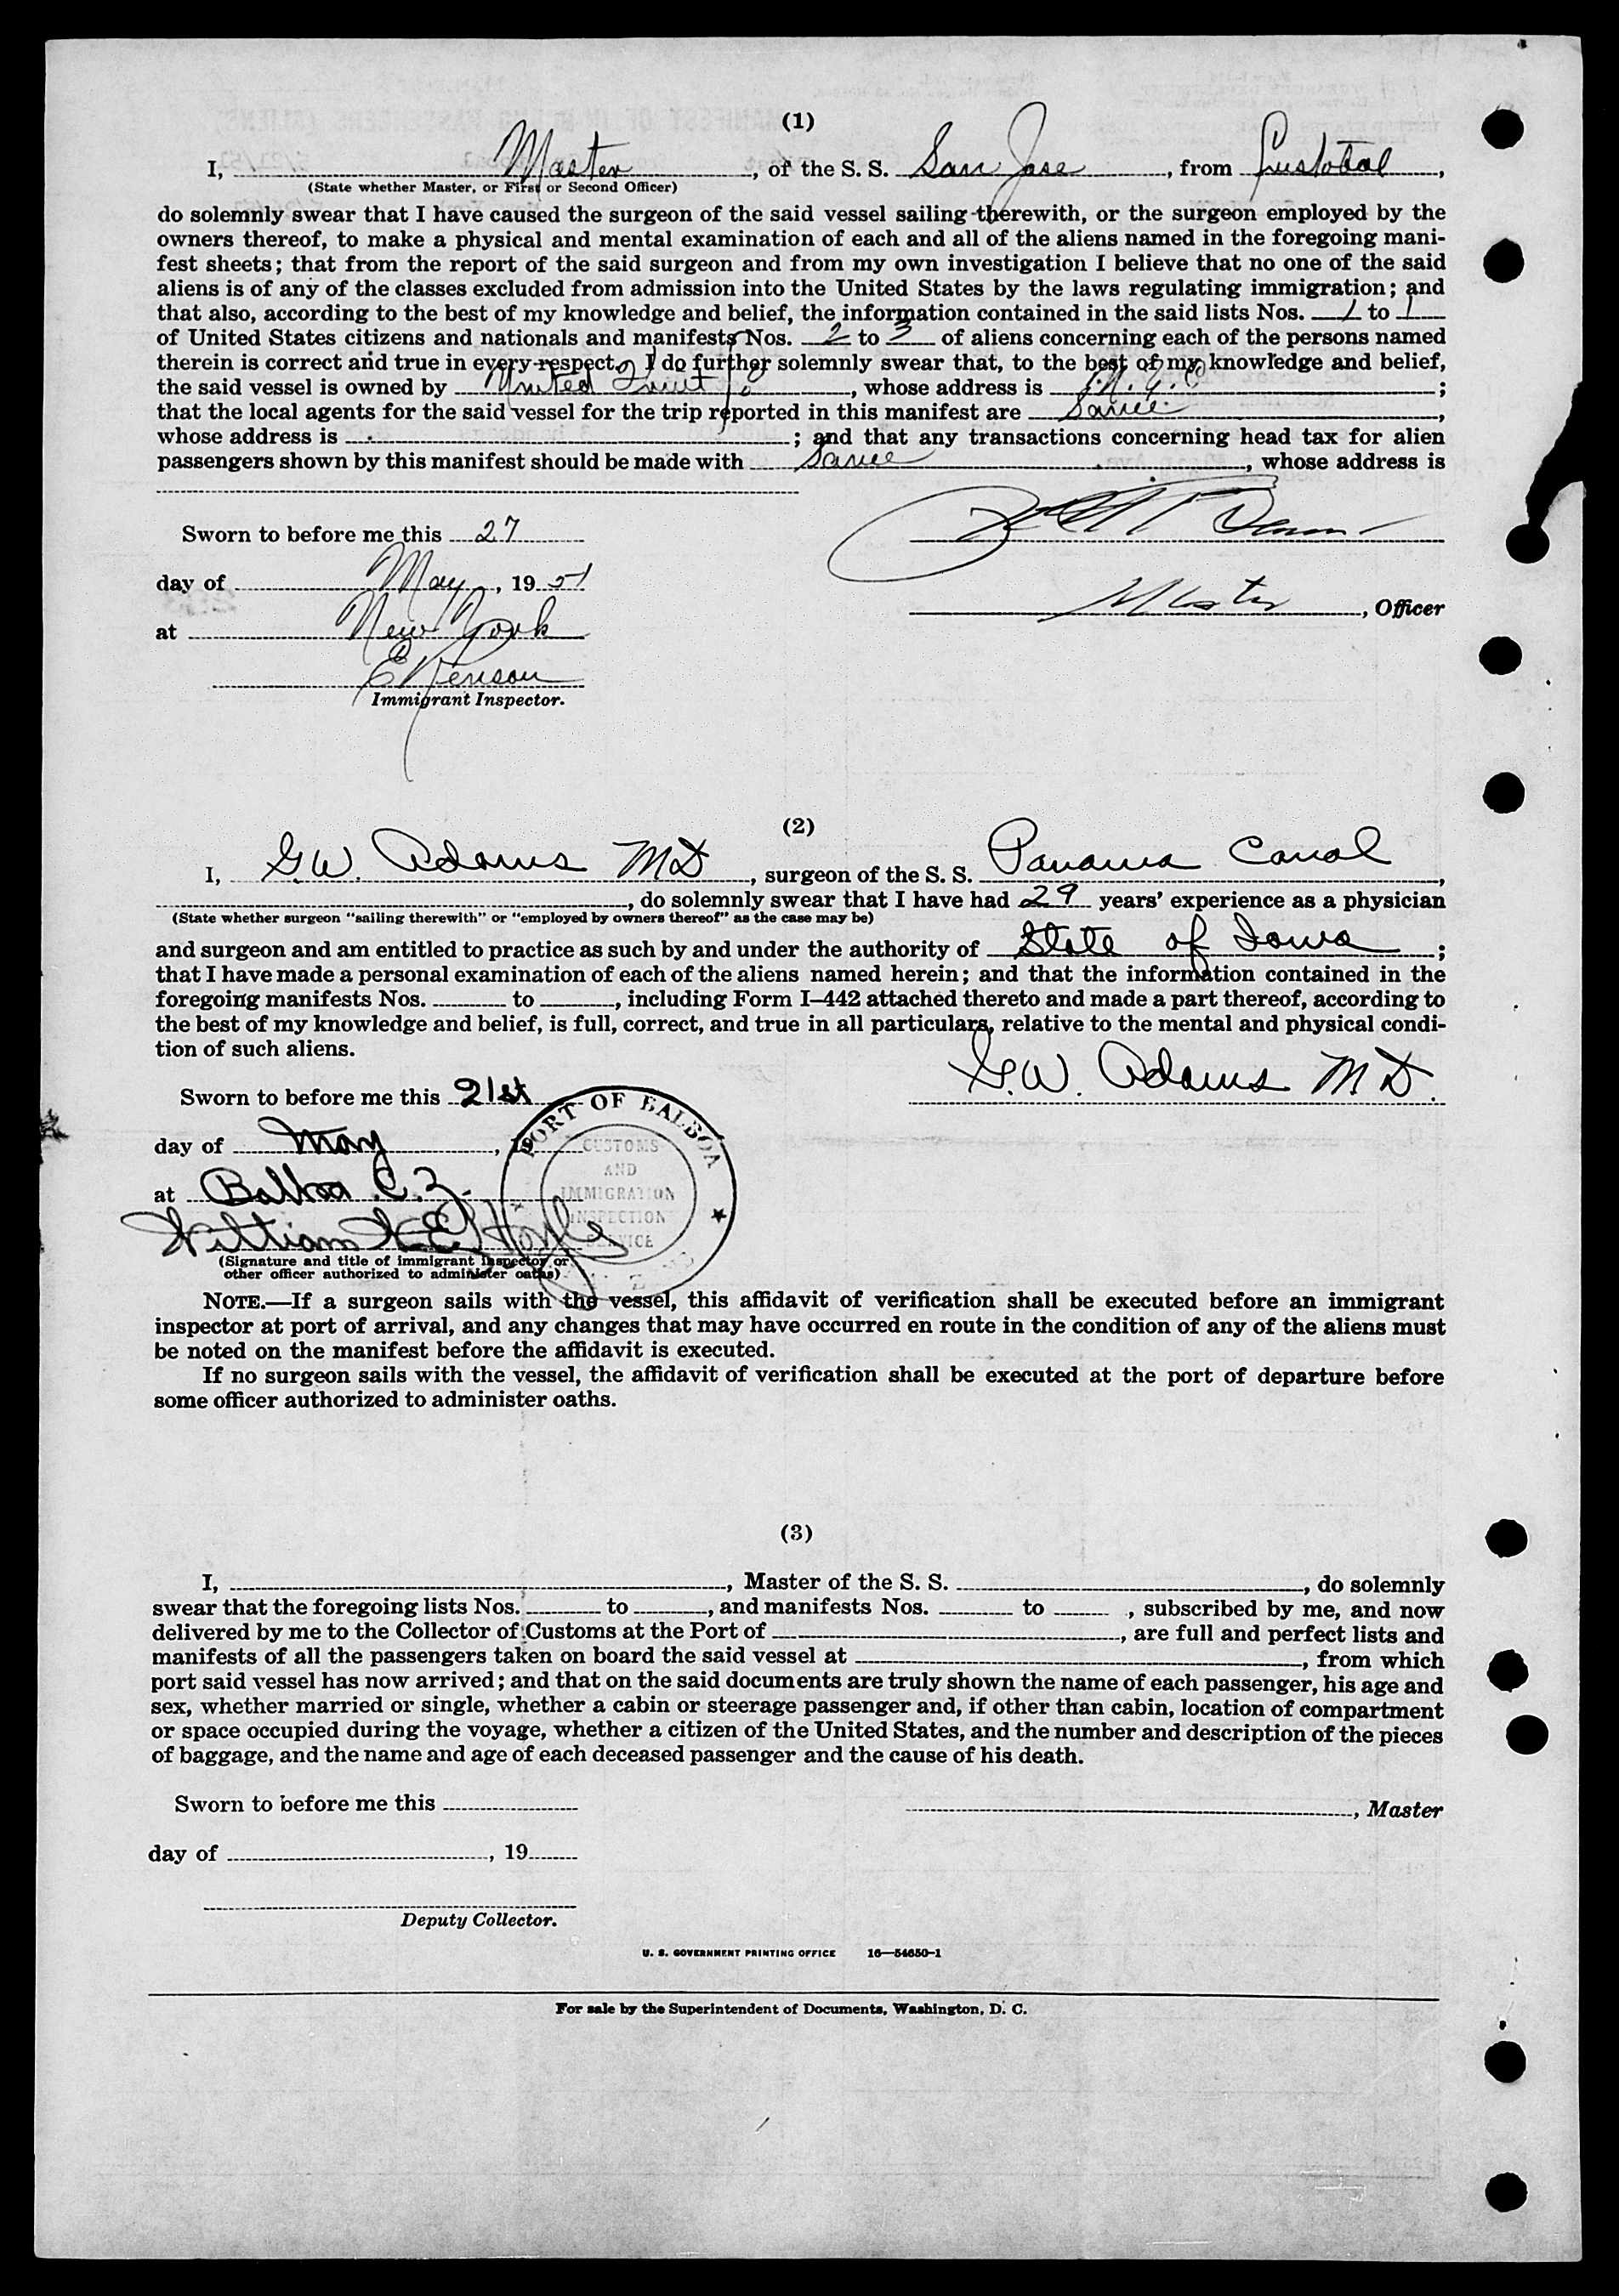 (1)
I, Master, of the S. S. San Jose, from Cristobal,
(State whether Master, or First or Second Officer)
do solemnly swear that I have caused the surgeon of the said vessel sailing therewith, or the surgeon employed by the
owners thereof, to make a physical and mental examination of each and all of the aliens named in the foregoing mani-
fest sheets; that from the report of the said surgeon and from my own investigation I believe that no one of the said
aliens is of any of the classes excluded from admission into the United States by the laws regulating immigration; and
that also, according to the best of my knowledge and belief, the information contained in the said lists Nos. 1 to 1
of United States citizens and nationals and manifests Nos. 2 to 3 of aliens concerning each of the persons named
therein is correct and true in every respect. I do further solemnly swear that, to the best of my knowledge and belief,
the said vessel is owned by United Fruit Co, whose address is N.Y.C;
that the local agents for the said vessel for the trip reported in this manifest are Same,
whose address is ; and that any transactions concerning head tax for alien
passengers shown by this manifest should be made with Same, whose address is
Sworn to before me this 27
day of May, 1951
Master, Officer
at New York
Immigrant Inspector.
(2)
I, G.W. Adams MD, surgeon of the S. S. Panama Canal,
, do solemnly swear that I have had 29 years' experience as a physician
(State whether surgeon "sailing therewith" or "employed by owners thereof" as the case may be)
and surgeon and am entitled to practice as such by and under the authority of State of Iowa;
that I have made a personal examination of each of the aliens named herein; and that the information contained in the
foregoing manifests Nos. to , including Form I-442 attached thereto and made a part thereof, according to
the best of my knowledge and belief, is full, correct, and true in all particulars, relative to the mental and physical condi-
tion of such aliens.
G.W. Adams MD.
Sworn to before me this 21st
day of May, 19
at Balboa C.Z.
William Hoyle
(Signature and title of immigrant inspector or
other officer authorized to administer oaths)
PORT OF BALBOA
CUSTOMS
AND
IMMIGRATION
INSPECTION
SERVICE
NOTE.—If a surgeon sails with the vessel, this affidavit of verification shall be executed before an immigrant
inspector at port of arrival, and any changes that may have occurred en route in the condition of any of the aliens must
be noted on the manifest before the affidavit is executed.
If no surgeon sails with the vessel, the affidavit of verification shall be executed at the port of departure before
some officer authorized to administer oaths.
(3)
I, , Master of the S. S. , do solemnly
swear that the foregoing lists Nos. to , and manifests Nos. to , subscribed by me, and now
delivered by me to the Collector of Customs at the Port of , are full and perfect lists and
manifests of all the passengers taken on board the said vessel at , from which
port said vessel has now arrived; and that on the said documents are truly shown the name of each passenger, his age and
sex, whether married or single, whether a cabin or steerage passenger and, if other than cabin, location of compartment
or space occupied during the voyage, whether a citizen of the United States, and the number and description of the pieces
of baggage, and the name and age of each deceased passenger and the cause of his death.
Sworn to before me this
, Master
day of , 19
Deputy Collector.
U. S. GOVERNMENT PRINTING OFFICE 16—54650-1
For sale by the Superintendent of Documents, Washington, D. C.